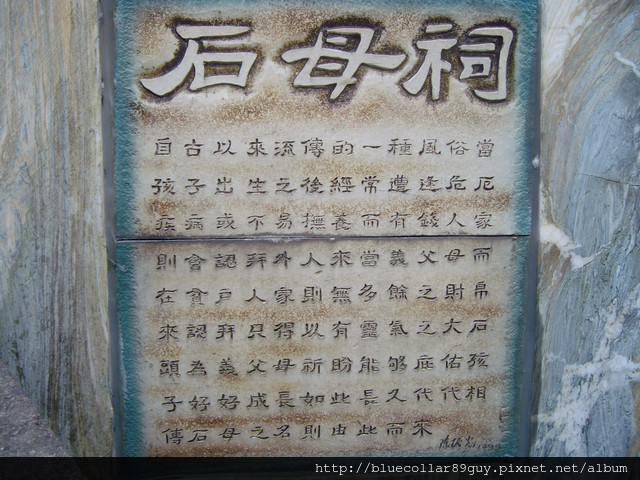 石母祠
自古以來流傳的一種風俗當
孩子出生之後經常遭逢危厄
疾病或不易撫養而有錢人家
則會認拜外人來當義父母而
在貧戶人家則無多餘之財帛
來認拜只得以有靈氣之大石
頭為義父母祈盼能够庇佑孩
子好好成長如此長久代代相
傳石母之名則由此而來
http://bluecollar89guy.pixnet.net/album